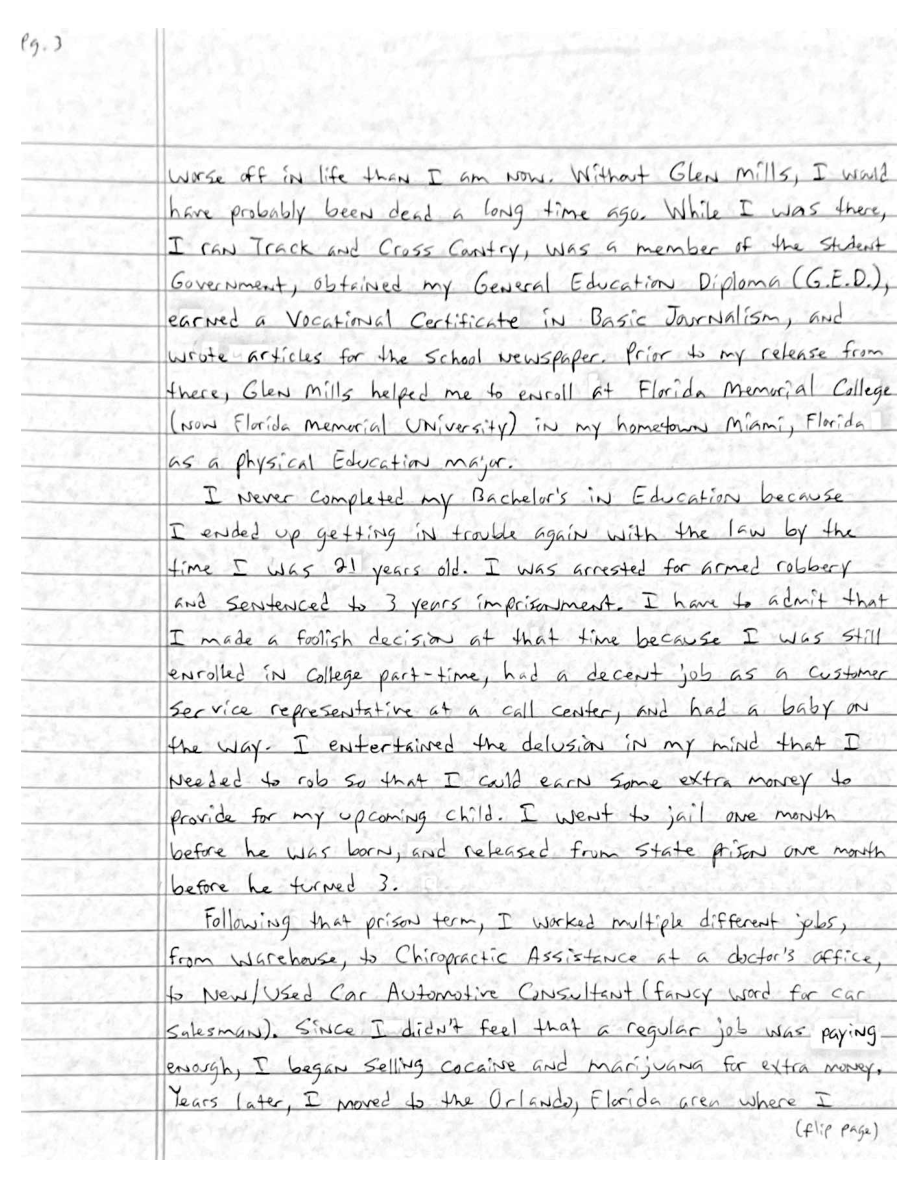 Pg. 3
worse off in life than I am now. Without Glen Mills, I would
have probably been dead a long time ago. While I was there,
I ran Track and Cross Cantry, was a member of the Student
Government, obtained my General Education Diploma (G.E.D.),
earned a Vocational Certificate in Basic Journalism, and
wrote articles for the School Newspaper. Prior to my release from
there, Glen Mills helped me to enroll at Florida Memorial College
(now Florida Memorial University) in my hometown Miami, Florida
as a physical Education major.
I never completed my Bachelor's in Education because
I ended up getting in trouble again with the law by the
time I was 21 years old. I was arrested for armed robbery
and sentenced to 3 years imprisonment. I have to admit that
I made a foolish decision at that time because I was still
enrolled in college part-time, had a decent job as a customer
service representative at a call center, and had a baby on
the way. I entertained the delusion in my mind that I
needed to rob so that I could earn some extra money to
provide for my upcoming child. I went to jail one month
before he was born, and released from state prison one month
before he turned 3.
Following that prison term, I worked multiple different jobs,
from warehouse, to Chiropractic Assistance at a doctor's office,
to New/Used Car Automotive Consultant (fancy word for car
salesman). Since I didn't feel that a regular job was paying
enough, I began selling cocaine and marijuana for extra money.
Years later, I moved to the Orlando, Florida area where I
(flip page)